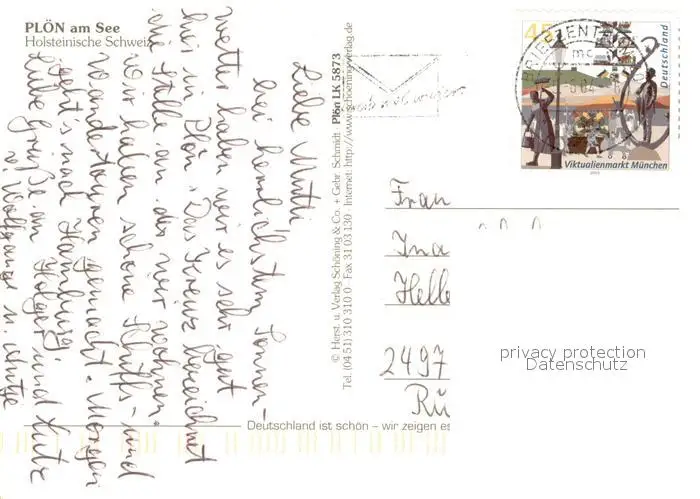 PLÖN am See
Holsteinische Schweiz
Liebe Mutti
bei herrlichstem Sonnen-
wetter haben wir es sehr gut
hier in Plön. Das Kreuz bezeichnet
die Stelle an der wir wohnen.
Wir haben schöne Schiffs- und
Wandertouren gemacht. Morgen
geht's nach Hamburg.
Liebe Grüße an Holger und
Wolfgang u. Antje
© Herst. u. Verlag Schöning & Co. + Gebr. Schmidt
Plön LK 5873
Tel. (04 51) 310 310 0 · Fax 31 03 130 · Internet: http://www.schoening-verlag.de
BRIEFZENTRUM
45
Deutschland
Viktualienmarkt München
Frau
Ina
Helle
2497
Rü
privacy protection
Datenschutz
Deutschland ist schön – wir zeigen es